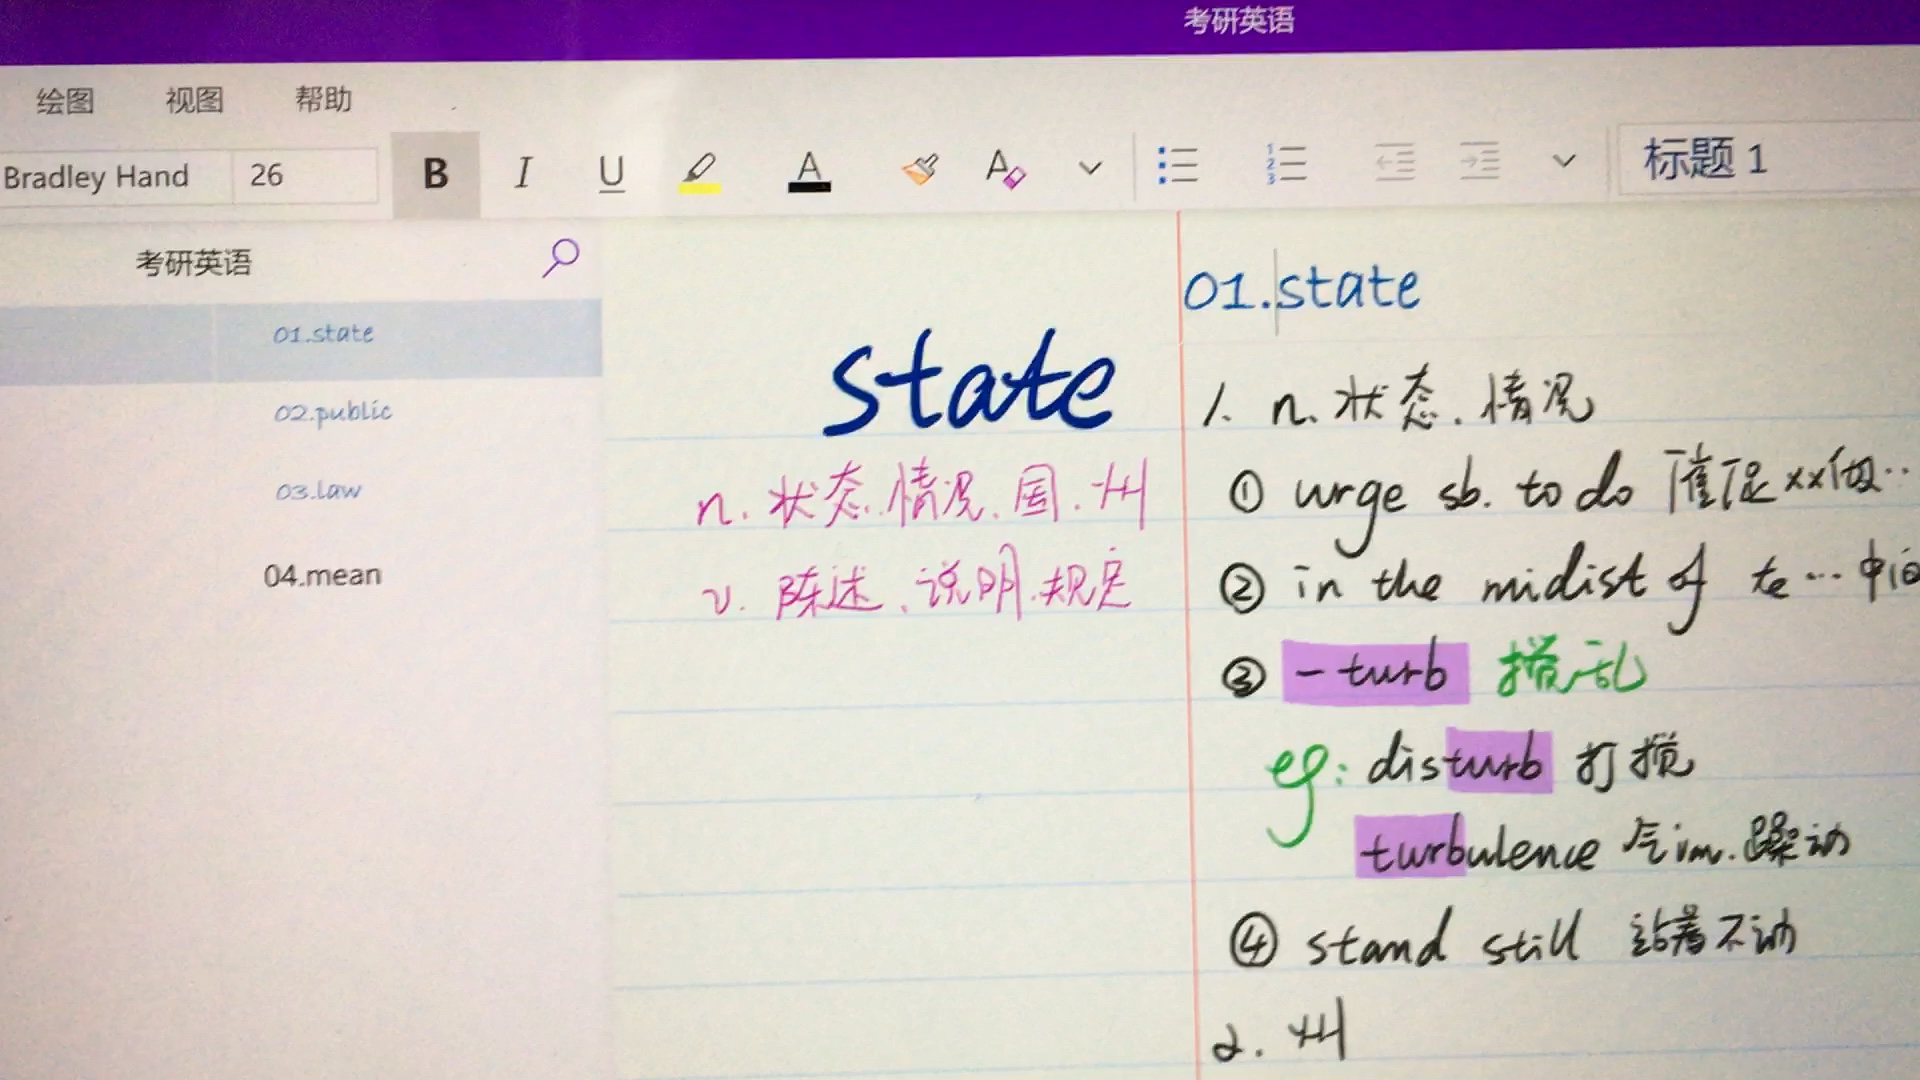 考研英语
绘图 视图 帮助
Bradley Hand 26 B I U A A 标题 1
考研英语
01.state
02.public
03.law
04.mean
state
n. 状态.情况.国.州
v. 陈述.说明.规定
01.state
1. n.状态.情况
① urge sb. to do 催促xx做..
② in the midist of 在...中间
③ -turb 搅乱
eg: disturb 打搅
turbulence 气流.躁动
④ stand still 站着不动
2. 州